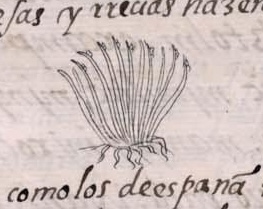 esas y rrecias hazen
como los deespanã